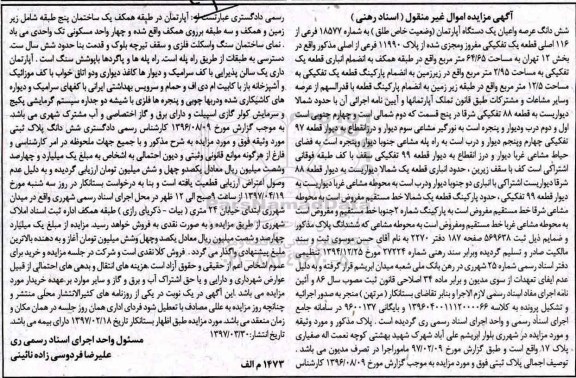 آگهی مزایده اموال غیر منقول ( اسناد رهنی )
شش دانگ عرصه واعیان یک دستگاه آپارتمان (وضعیت خاص طلق) به شماره ۱۸۵۷۷ فرعی از
۱۱۶ اصلی قطعه یک تفکیکی مفروز ومجزی شده از پلاک ۱۱۹۹۰ فرعی از اصلی مذکور واقع در
بخش ۱۲ تهران به مساحت ۶۴/۶۵ متر مربع واقع در طبقه همکف به انضمام انباری قطعه یک
تفکیکی به مساحت ۲/۹۵ متر مربع واقع در زیرزمین به انضمام پارکینگ قطعه یک تفکیکی به
مساحت ۱۲/۵ متر مربع واقع در طبقه زیر زمین به انضمام پارکینگ قطعه با قدرالسهم از عرصه
وسایر مشاعات و مشترکات طبق قانون تملک آپارتمانها و آیین نامه اجرائی آن با حدود شمالا
دیواریست به قطعه ۸۸ تفکیکی شرقا در پنج قسمت که دوم شمالی است و چهارم جنوبی است
اول و دوم درب ودیوار و پنجره است به نورگیر مشاعی سوم دیوار و درزانقطاع به دیوار قطعه ۹۷
تفکیکی چهارم وپنجم دیوار و درب است به راه پله مشاعی جنوبا دیوار وپنجره است به فضای
حیاط مشاعی غربا دیوار و درز انقطاع به دیوار قطعه ۹۹ تفکیکی سقف با کف طبقه فوقانی
اشتراکی است کف با سقف زیرین ، حدود انباری قطعه یک شمالا دیواریست به دیوار قطعه ۸۸
شرقا دیواریست اشتراکی با انباری دو جنوبا دیوار ودرب است به محوطه مشاعی غربا دیواریست به
دیوار قطعه ۹۹ تفکیکی ، حدود پارکینگ قطعه یک شمالا خط مستقیم مفروض است به محوطه
مشاعی شرقا خط مستقیم مفروض است به پارکینگ شماره ۲ جنوبا خط مستقیم و مفروض است
به محوطه مشاعی غربا خط مستقیم ومفروض است به محوطه مشاعی که ششدانگ پلاک مذکور
و ضمایم ذیل ثبت ۵۶۹۶۳۸ صفحه ۱۸۷ دفتر ۲۲۷۰ به نام آقای حسن موسوی ثبت و سند
مالکیت صادر و تسلیم گردیده وبرابر سند رهنی شماره ۲۷۲۲۴ مورخ ۱۳۹۱/۲/۲۵ تنظیمی
دفتر اسناد رسمی شماره ۲۵ شهرری در رهن بانک ملی شعبه میدان ابریشم قرار گرفته و به دلیل
عدم ایفای تعهدات از سوی مدیون و برابر ماده ۳۴ اصلاحی قانون ثبت مصوب سال ۸۶ و آئین
نامه اجرای مفاد اسناد رسمی لازم الاجرا و بنابر تقاضای بستانکار (مرتهن) منجر به صدور اجرائیه
و تشکیل پرونده به کلاسه ۱۳۹۶۰۴۰۰۱۱۱۲۰۰۰۰۶۶ و بایگانی ۹۶۰۰۱۳۷ در سامانه جامع
اجرای اسناد رسمی و واحد اجرای اسناد رسمی ری گردیده است . پلاک مذکور و مورد وثیقه
و مورد مزایده در شهرری بلوار ابریشم علی آباد شهرک شهید بهشتی کوچه نعمت اله صفیاری
پلاک ۱۷ واقع است و طبق گزارش مورخ ۹۷/۰۲/۰۹ مامور اجرا در تصرف مدیون می باشد .
توصیف اجمالی پلاک ثبتی فوق و مورد مزایده به موجب گزارش مورخ ۱۳۹۶/۰۸/۰۹ کارشناس
رسمی دادگستری عبارتست از : آپارتمان در طبقه همکف یک ساختمان پنج طبقه شامل زیر
زمین و همکف و سه طبقه برروی همکف واقع شده و چهار واحد مسکونی تک واحدی می باد
. نمای ساختمان سنگ واسکلت فلزی و سقف تیرچه بلوک و قدمت بنا حدود شش سال ست .
دسترسی به طبقات از طریق راه پله است. راه پله ها و پاگردها باپوشش سنگ است . آپارتمان
داری یک سالن پذیرایی با کف سرامیک و دیوار ها کاغذ دیواری ودو اتاق خواب با کف موزائیک
و آشپزخانه باز با کابینت ام دی اف و حمام و سرویس بهداشتی ایرانی با کفهای سرامیک و دیواره
های کاشیکاری شده ودربها چوبی و پنجره ها فلزی با شیشه دو جداره سیستم گرمایشی پکیج
و سرمایش کولر گازی اسپیلت و دارای برق و گاز اختصاصی و آب مشترک شهری می باشد.
به موجب گزارش مورخ ۱۳۹۶/۰۸/۰۹ کارشناس رسمی دادگستری شش دانگ پلاک ثبتی
مورد وثیقه فوق و مورد مزایده به شرح مذکور و با جمیع جهات ملحوظه در امر کارشناسی و
فارغ از هرگونه موانع قانونی وثبتی و دیون احتمالی به اشخاص به مبلغ یک میلیارد و چهارصد
وشصت میلیون ریال معادل یکصدو چهل و شش میلیون تومان ارزیابی گردیده و به دلیل عدم
وصول اعتراض ارزیابی قطعیت یافته است و بنا به درخواست بستانکار در روز سه شنبه مورخ
۱۳۹۷/۰۴/۱۹ از ساعت ۹ صبح الی ۱۲ ظهر در محل اجرای اسناد رسمی شهرری واقع در میدان
شهرری ابتدای خیابان ۲۴ متری ( بیات -ذکریای رازی ) طبقه همکف اداره ثبت اسناد املاک
شهرری از طریق مزایده و به صورت نقدی به فروش خواهد رسید. مزایده از مبلغ یک میلیارد
چهارصد وشصت میلیون ریال معادل یکصد وچهل وشش میلیون تومان آغاز و به دهنده بالاترین
مبلغ پیشنهادی واگذار می گردد . فروش کلا نقدی است و شرکت در جلسه مزایده و خرید برای
عموم اشخاص اعم از حقیقی و حقوقی آزاد است. هزینه های انتقال و بدهی های احتمالی از قبیل
عوارض شهرداری و دارایی و یا حق اشتراک آب و برق و گاز و سایر موارد برعهده خریدار مورد
مزایده می باشد .این آگهی در یک نوبت در یکی از روزنامه های کثیرالانتشار محلی منتشر و
چنانچه روز مزایده به عللی مصادف با تعطیل شود فردای اداری همان روز جلسه در همان مکان و
زمان منعقد می باشد. مورد مزایده طبق اظهار بستانکار تاریخ ۱۳۹۷/۰۲/۱۸ دارای بیمه می باشد .
تاریخ انتشار: ۱۳۹۷/۰۳/۳۰
مسئول واحد اجرای اسناد رسمی ری
علیرضا فردوسی زاده نائینی
۱۴۷۳ م الف